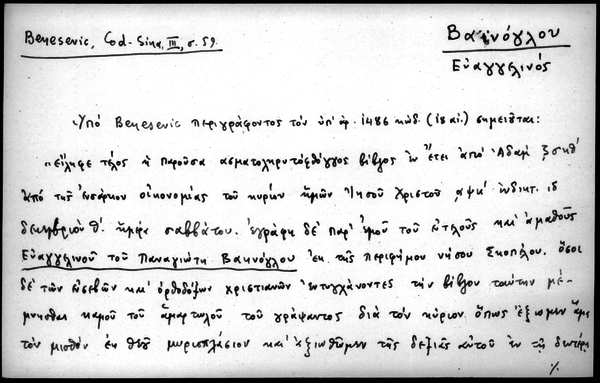 Benesevic, Cod-Sina, III, σ. 59.
Βαϊνόγλου
Εὐαγγελινός
Ὑπό Benesevic περιγράφοντος τόν ὑπ' ἀρ. 1486 κώδ. (18 αἰ.) σημειοῦται:
"εἴληφε τέλος ἡ παροῦσα ασματοληρυτόφθογγος βίβλος ἐν ἔτει ἀπό Ἀδάμ ζσκθ'
ἀπό τῆς ἐνσάρκου οἰκονομίας τοῦ κυρίου ἡμῶν Ἰησοῦ Χριστοῦ αψκ' ἰνδικτ. ιδ
δεκεμβρίου θ'. ἡμέρα σαββάτου. ἐγράφη δέ παρ' ἐμοῦ τοῦ εὐτελοῦς καί ἀμαθοῦς
Εὐαγγελινοῦ τοῦ Παναγιώτη Βαϊνόγλου ἐκ τῆς περιφήμου νήσου Σκοπέλου. ὅσοι
δέ τῶν εὐσεβῶν καί ὀρθοδόξων χριστιανῶν ἐντυγχάνοντες τήν βίβλον ταύτην μέ-
μνησθαι καμοῦ τοῦ ἁμαρτωλοῦ τοῦ γράψαντος διά τόν κύριον. ὅπως ἕξωμεν ἅμα
τόν μισθόν ἐκ θεοῦ μυριοπλάσιον καί ἀξιωθῶμεν τῆς δεξιᾶς αὐτοῦ ἐν τῇ δευτέρᾳ
./.